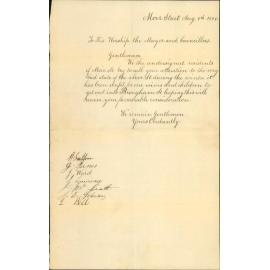 Moss Street Aug 9th
To His Worship the Mayor and Councillors
Gentlemen
We the undersigned residents
of Moss St beg to call your attention to the very
bad state of the above St during the winter it
has been unfit for our wives and children to
get out into Brougham St hoping this will
receive your favourable consideration
We remain Gentlemen
Yours Obediently
G
J Ward
J
E Bell